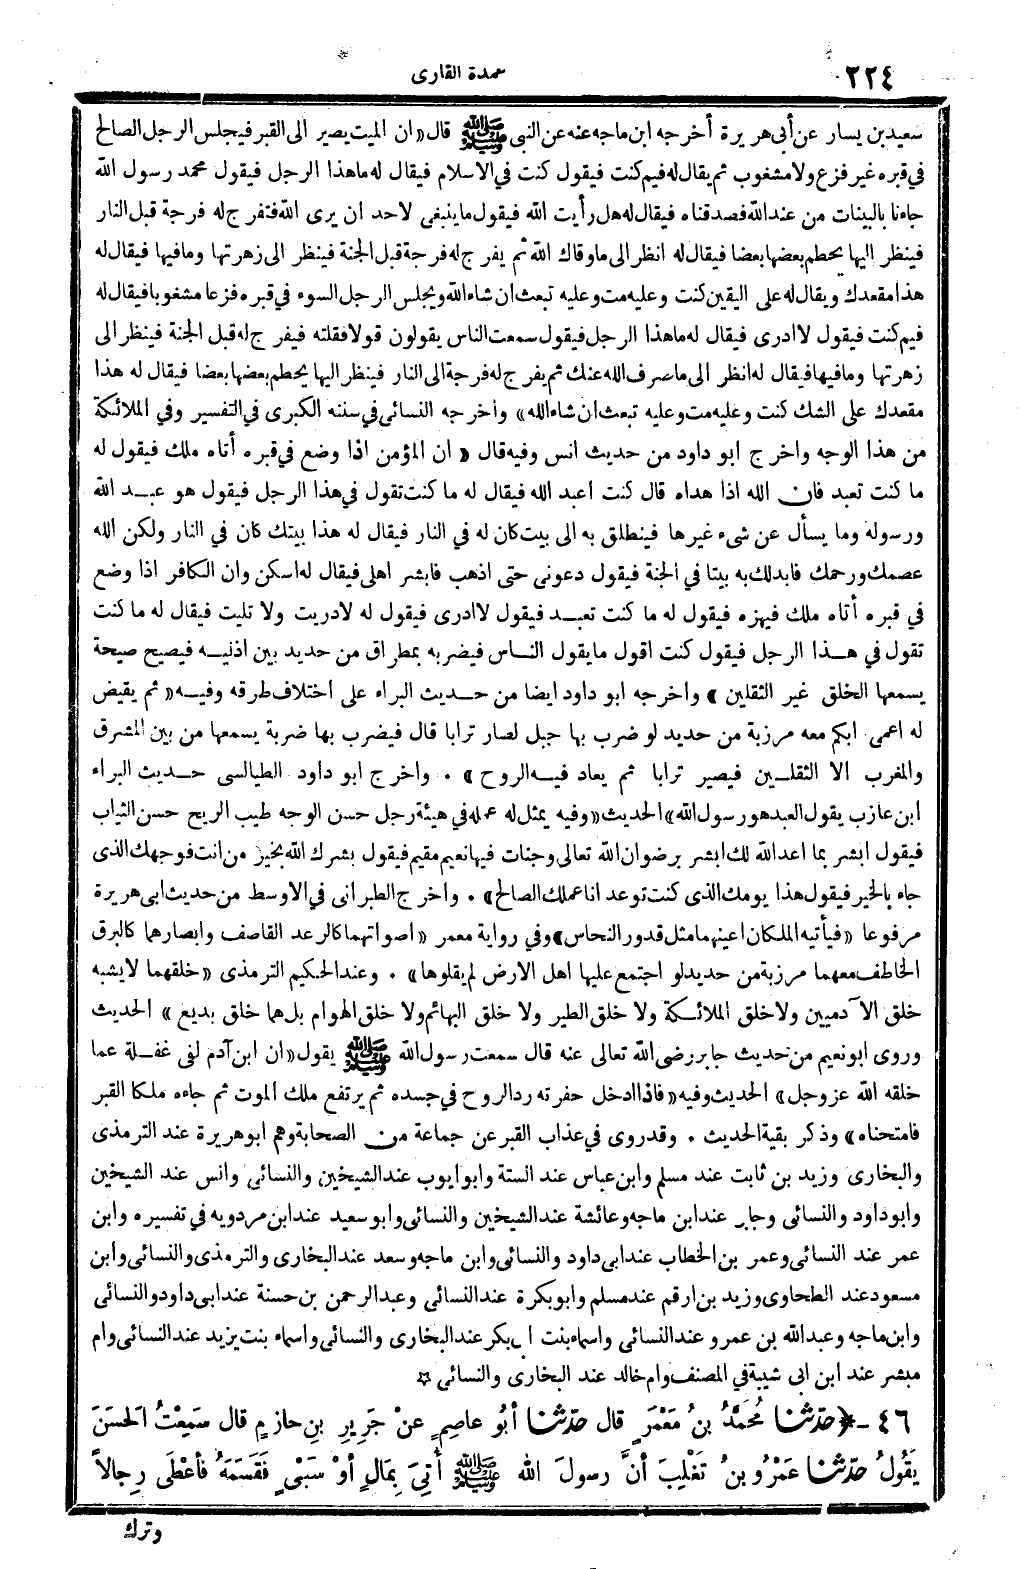 ٢٢٤
عمدة القارى
سعيد بن يسار عن أبى هريرة أخرجه ابن ماجه عنه عن النبى ﷺ قال «ان الميت يصير الى القبر فيجلس الرجل الصالح
فى قبره غير فزع ولا مشغوب ثم يقال له فيم كنت فيقول كنت فى الاسلام فيقال له ما هذا الرجل فيقول محمد رسول الله
جاءنا بالبينات من عند الله فصدقناه فيقال له هل رأيت الله فيقول ما ينبغى لاحد ان يرى الله فتفرج له فرجة قبل النار
فينظر اليها يحطم بعضها بعضا فيقال له انظر الى ما وقاك الله ثم يفرج له فرجة قبل الجنة فينظر الى زهرتها وما فيها فيقال له
هذا مقعدك ويقال له على اليقين كنت وعليه مت وعليه تبعث ان شاء الله ويجلس الرجل السوء فى قبره فزعا مشغوبا فيقال له
فيم كنت فيقول لا ادرى فيقال له ما هذا الرجل فيقول سمعت الناس يقولون قولا فقلته فيفرج له قبل الجنة فينظر الى
زهرتها وما فيها فيقال له انظر الى ما صرف الله عنك ثم يفرج له فرجة الى النار فينظر اليها يحطم بعضها بعضا فيقال له هذا
مقعدك على الشك كنت وعليه مت وعليه تبعث ان شاء الله» واخرجه النسائى فى سننه الكبرى فى التفسير وفى الملائكة
من هذا الوجه واخرج ابو داود من حديث انس وفيه قال «ان المؤمن اذا وضع فى قبره أتاه ملك فيقول له
ما كنت تعبد فان الله اذا هداه قال كنت اعبد الله فيقال له ما كنت تقول فى هذا الرجل فيقول هو عبد الله
ورسوله وما يسأل عن شىء غيرها فينطلق به الى بيت كان له فى النار فيقال له هذا بيتك كان فى النار ولكن الله
عصمك ورحمك فابدلك به بيتا فى الجنة فيقول دعونى حتى اذهب فابشر اهلى فيقال له اسكن وان الكافر اذا وضع
فى قبره أتاه ملك فيهزه فيقول له ما كنت تعبد فيقول لا ادرى فيقول له لا دريت ولا تليت فيقال له ما كنت
تقول فى هذا الرجل فيقول كنت اقول ما يقول الناس فيضربه بمطراق من حديد بين اذنيه فيصيح صيحة
يسمعها الخلق غير الثقلين» واخرجه ابو داود ايضا من حديث البراء على اختلاف طرقه وفيه «ثم يقيض
له اعمى ابكم معه مرزبة من حديد لو ضرب بها جبل لصار ترابا قال فيضرب بها ضربة يسمعها من بين المشرق
والمغرب الا الثقلين فيصير ترابا ثم يعاد فيه الروح» . واخرج ابو داود الطيالسى حديث البراء
ابن عازب يقول العبد هو رسول الله» الحديث «وفيه يمثل له عمله فى هيئة رجل حسن الوجه طيب الريح حسن الثياب
فيقول ابشر بما اعد الله لك ابشر برضوان الله تعالى وجنات فيها نعيم مقيم فيقول بشرك الله بخير من انت فوجهك الذى
جاء بالخير فيقول هذا يومك الذى كنت توعد انا عملك الصالح» . واخرج الطبرانى فى الاوسط من حديث ابى هريرة
مرفوعا «فيأتيه الملكان اعينهما مثل قدور النحاس» وفى رواية معمر «اصواتهما كالرعد القاصف وابصارهما كالبرق
الخاطف معهما مرزبة من حديد لو اجتمع عليها اهل الارض لم يقلوها» . وعند الحكيم الترمذى «خلقهما لا يشبه
خلق الآدميين ولا خلق الملائكة ولا خلق الطير ولا خلق البهائم ولا خلق الهوام بل هما خلق بديع» الحديث
وروى ابو نعيم من حديث جابر رضى الله تعالى عنه قال سمعت رسول الله ﷺ يقول «ان ابن آدم لفى غفلة عما
خلقه الله عز وجل» الحديث وفيه «فاذا ادخل حفرته رد الروح فى جسده ثم يرتفع ملك الموت ثم جاءه ملكا القبر
فامتحناه» وذكر بقية الحديث . وقد روى فى عذاب القبر عن جماعة من الصحابة وهم ابو هريرة عند الترمذى
والبخارى وزيد بن ثابت عند مسلم وابن عباس عند الستة وابو ايوب عند الشيخين والنسائى وانس عند الشيخين
وابو داود والنسائى وجابر عند ابن ماجه وعائشة عند الشيخين والنسائى وابو سعيد عند ابن مردويه فى تفسيره وابن
عمر عند النسائى وعمر بن الخطاب عند ابى داود والنسائى وابن ماجه وسعد عند البخارى والترمذى والنسائى وابن
مسعود عند الطحاوى وزيد بن ارقم عند مسلم وابو بكرة عند النسائى وعبد الرحمن بن حسنة عند ابى داود والنسائى
وابن ماجه وعبد الله بن عمرو عند النسائى واسماء بنت ابى بكر عند البخارى والنسائى واسماء بنت يزيد عند النسائى وام
مبشر عند ابن ابى شيبة فى المصنف وام خالد عند البخارى والنسائى
٤٦ - حدثنا مُحَمَّدُ بنُ مَعْمَرٍ قال حدثنا أبُو عاصِمٍ عنْ جَرِيرِ بنِ حازِمٍ قال سَمِعْتُ الحَسَنَ
يَقُولُ حدثنا عَمْرُو بنُ تَغْلِبَ أنَّ رسولَ الله ﷺ أُتِىَ بِمَالٍ أوْ سَبْىٍ فَقَسَمَهُ فأعْطَى رِجالاً
وترك